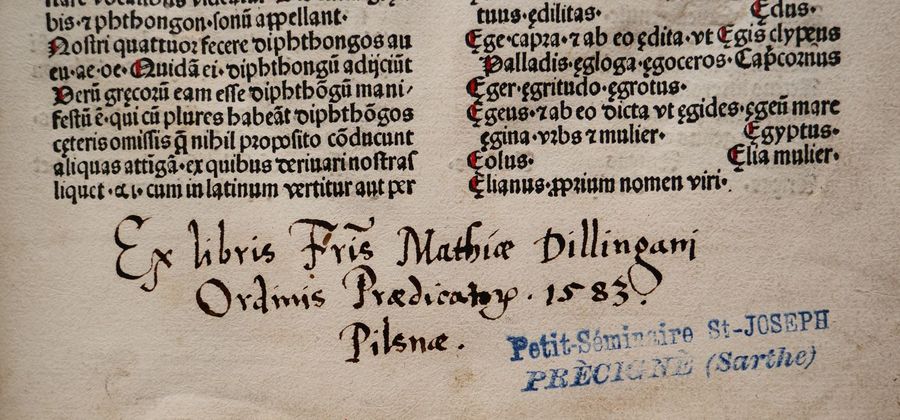 bis·⁊ phthongon·sonū appellant·
Nostri quattuor fecere diphthongos au
eu·ae·oe·Quidā ei·diphthongū adijciūt
Verū gręcorū eam esse diphthōgū mani/
festū ē·qui cū plures habeāt diphthōgos
cęteris omissis q̄ nihil proposito cōducunt
aliquas attigā·ex quibus deriuari nostras
liquet·ai·cum in latinum vertitur aut per
tuus·ędilitas· Ędus·
Ęge·capra·⁊ ab eo ędita·vt Ęgis clypeus
Palladis·ęgloga·ęgoceros·Capcornus
Ęger·ęgritudo·ęgrotus·
Ęgeus·⁊ ab eo dicta vt ęgides·ęgeū mare
ęgina·vrbs ⁊ mulier· Ęgyptus·
Ęolus· Ęlia mulier·
Ęlianus·ꝓprium nomen viri·
Ex libris Fr̄is Mathiæ Dillingani
Ordinis Prædicatoꝝ · 1583
Pilsnæ.
Petit-Séminaire St-JOSEPH
PRÈCIGNÈ (Sarthe)